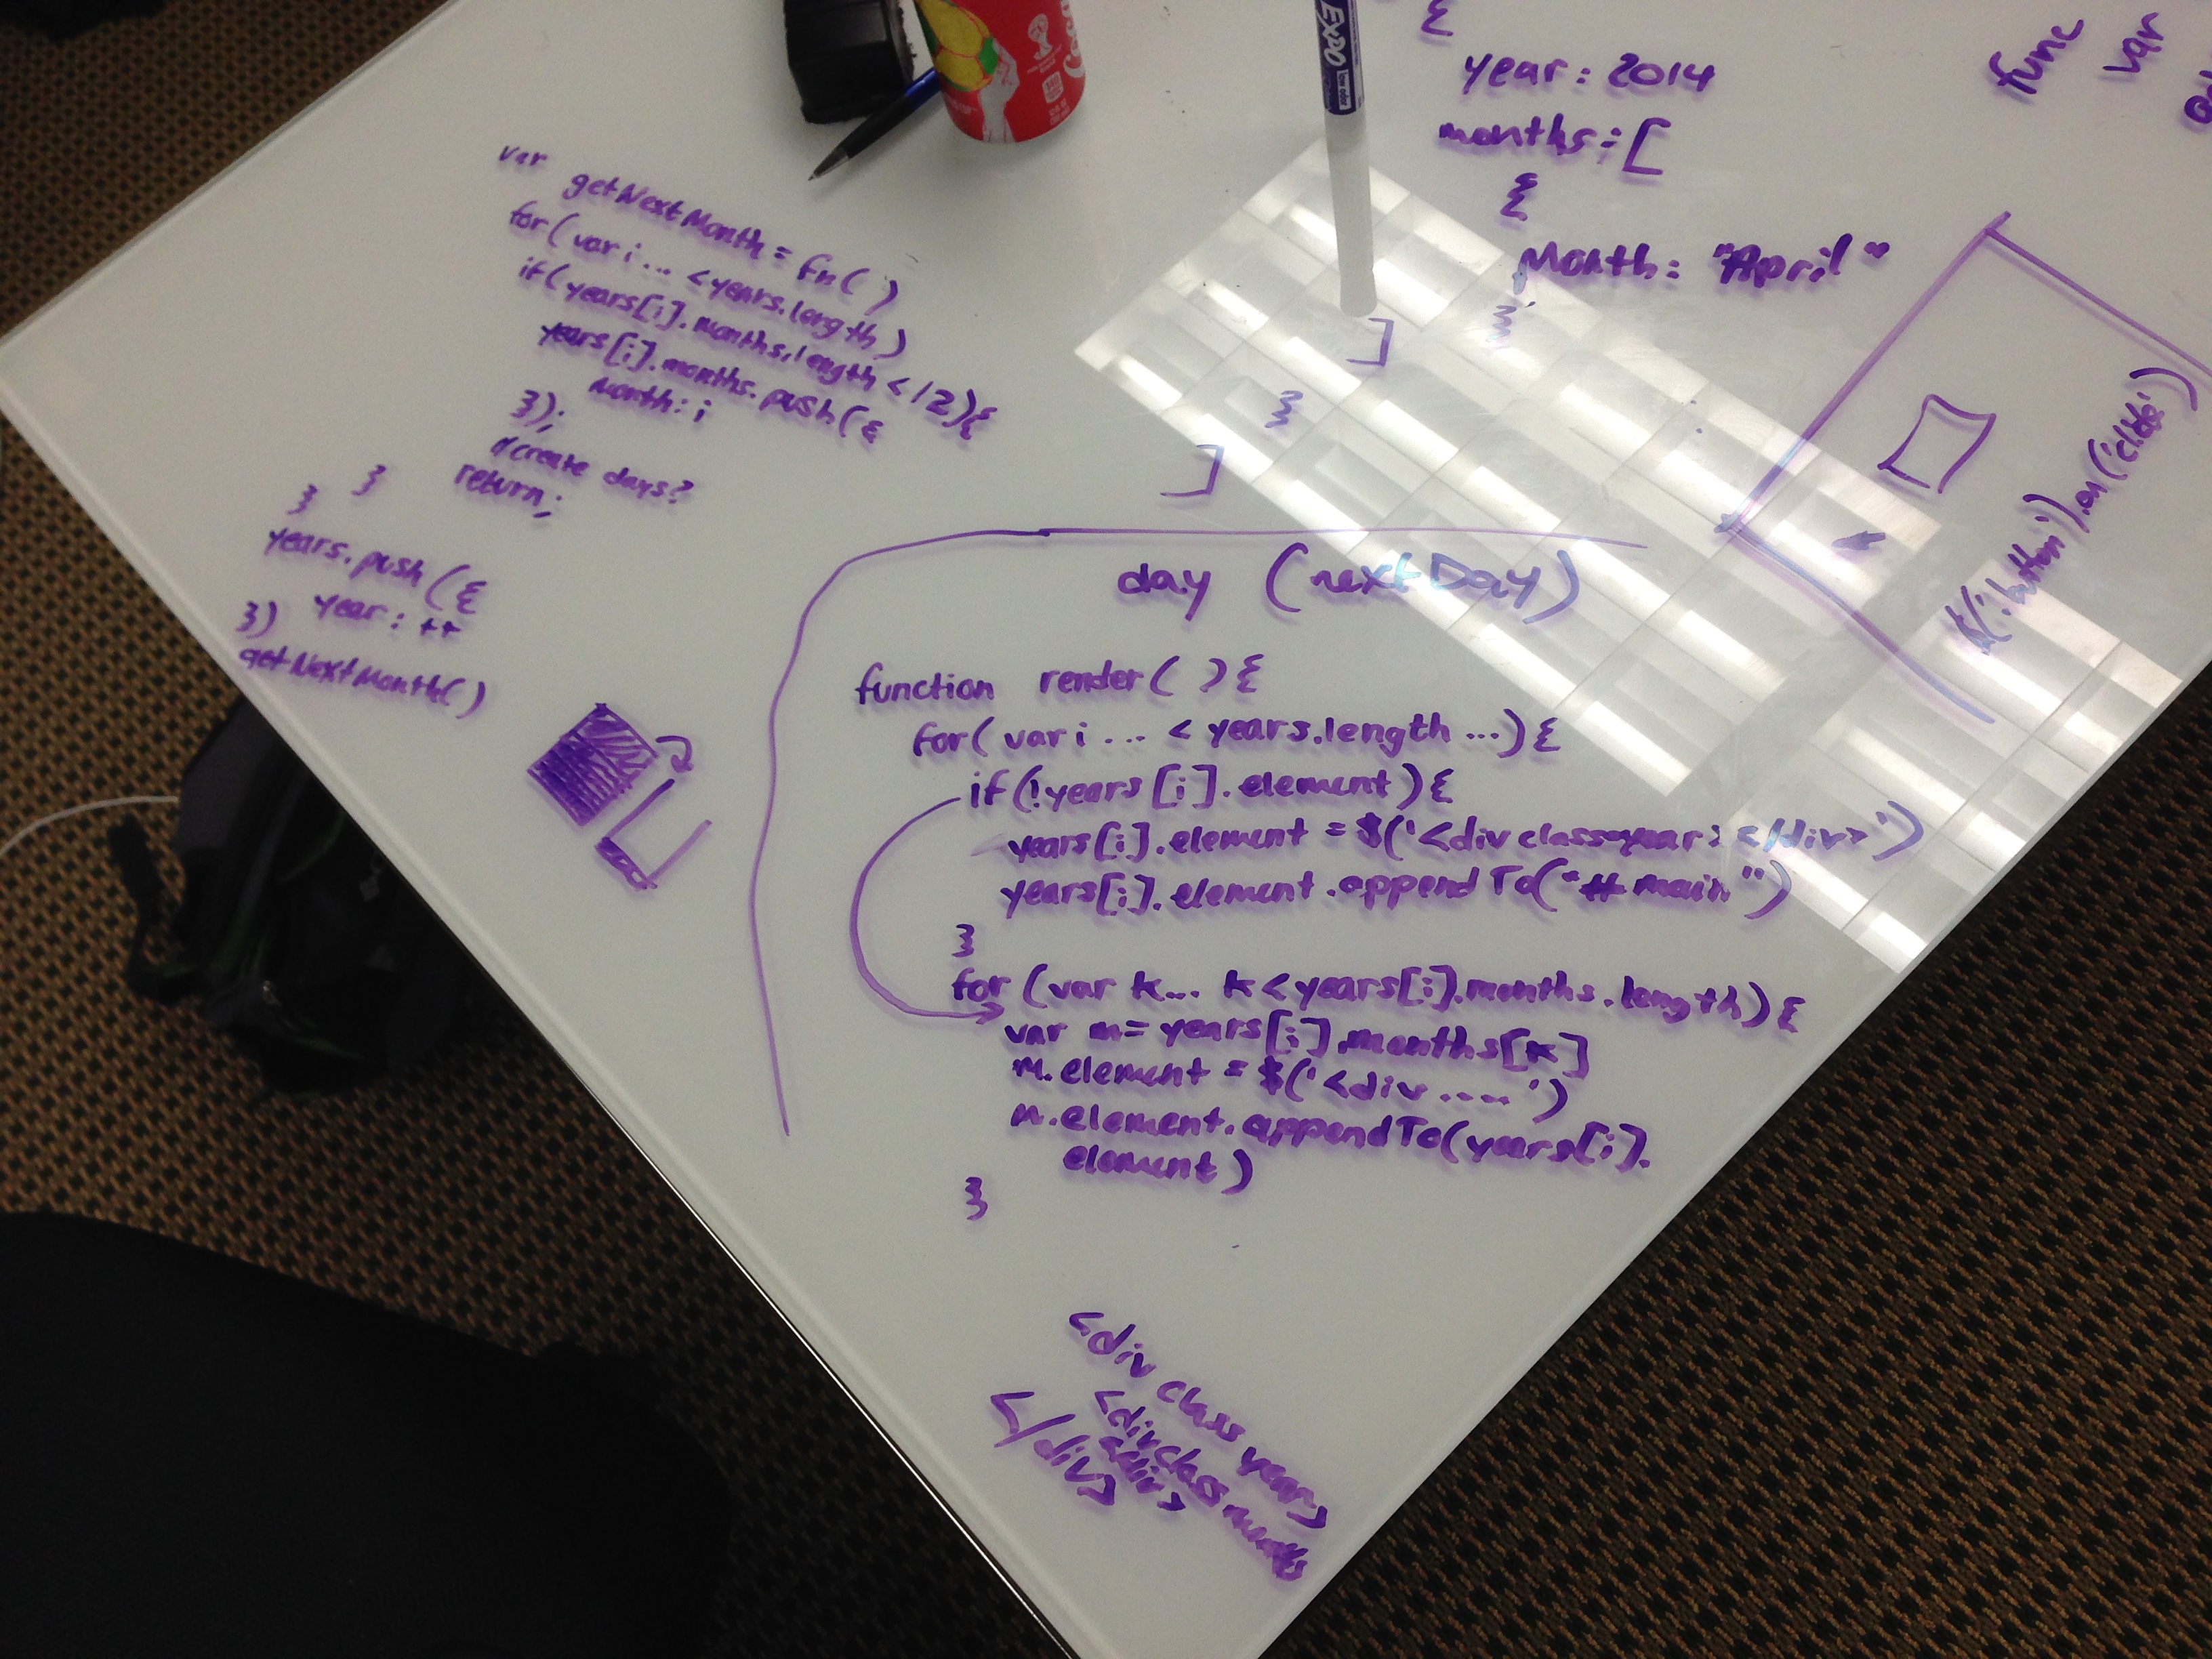 var getNextMonth = fn()
for(var i... < years.length)
if(years[i].months.length < 12){
years[i].months.push({
month: i
});
// create days?
return;
}
}
years.push({
year: ++
})
getNextMonth()
{
year: 2014
months: [
{
Month: "April"
}
]
}
]
day (nextDay)
function render(){
for(var i.... < years.length...){
if(!years[i].element){
years[i].element = $('<div class=year></div>')
years[i].element.appendTo("#main")
}
for(var k... k<years[i].months.length){
var m = years[i].months[k]
m.element = $('<div.....')
m.element.appendTo(years[i].
element)
}
<div class year>
<div class month
</div>
</div>
$('button').on('click')
func
var
EXPO
low odor
Coca